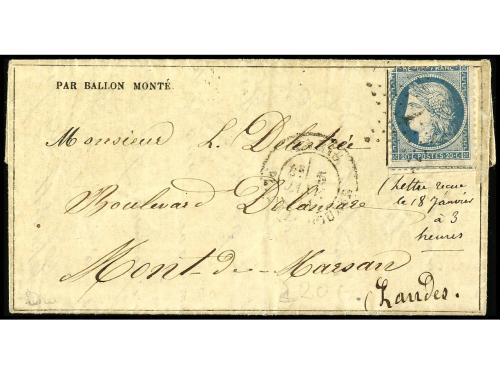 PAR BALLON MONTÉ.
REPUB. FRANC.
20 C. POSTES 20 C.
Monsieur L. Delestrée
Boulevard Delamare
Mont-de-Marsan
(Landes.
(lettre reçue
le 18 Janvier
à 3
heures